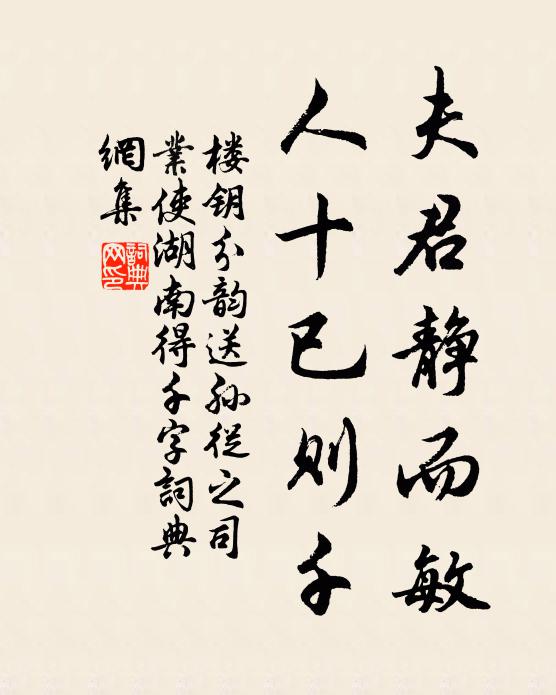 夫君静而敏
人十已则千
楼钥分韵送孙従之司
业使湖南得千字詞典
網集
詞典
网印